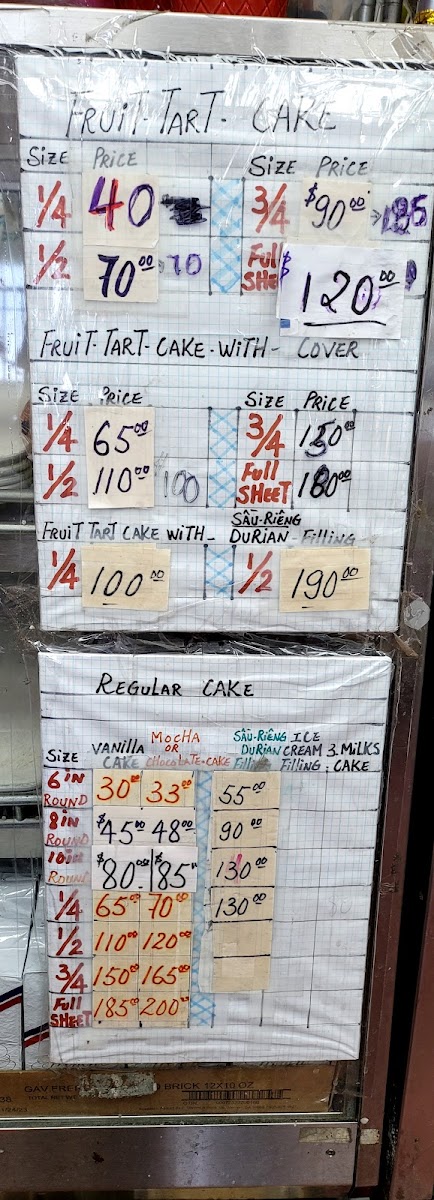 FRUIT-TART- CAKE
SIZE PRICE SIZE PRICE
1/4 40 3/4 $90.00
1/2 70.00 70 FULL SHE $120.00
FRUIT-TART-CAKE-WITH- COVER
SIZE PRICE SIZE PRICE
1/4 65.00 3/4 150.00
1/2 110.00 100 FULL SHEET 180.00
FRUIT TART CAKE WITH- SẦU-RIÊNG DURIAN-FILLING
1/4 100.00 1/2 190.00
REGULAR CAKE
SIZE VANILLA CAKE MOCHA OR CHOCOLATE-CAKE SẦU-RIÊNG DURIAN Filling ICE CREAM Filling 3.MILKS CAKE
6 IN ROUND 30.00 33.00 55.00
8 IN ROUND $45.00 48.00 90.00
10 IN ROUND $80.00 $85.00 130.00
1/4 65.00 70.00 130.00
1/2 110.00 120.00
3/4 150.00 165.00
FULL SHEET 185.00 200.00
BRICK 12X10 OZ